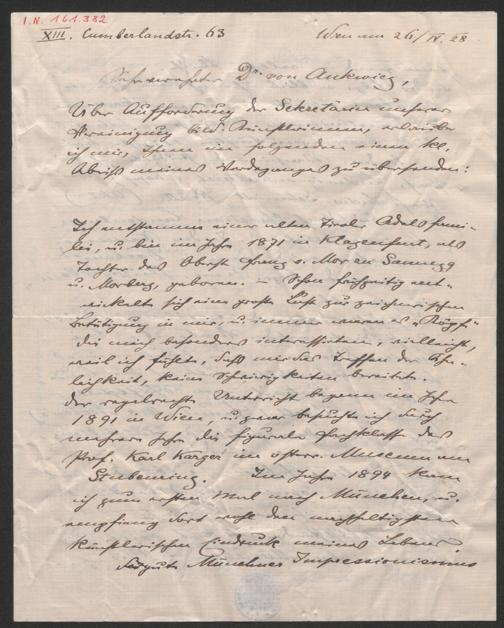 I.N. 161.382
XIII. Cumberlandstr. 63 Wien am 26/IV. 28
Sehr verehrter Dr. von Ankwicz,
Über Aufforderung der Sekretärin unserer
Vereinigung bild. Künstlerinnen, erlaube
ich mir, Ihnen im folgenden einen kl.
Abriß meines Werdeganges zu übersenden:
Ich entstamme einer alten Tiroler Adelsfami-
lie, u. bin im Jahre 1871 in Klagenfurt, als
Tochter des Oberst Franz v. Mor zu Sunegg
u. Morberg, geboren. – Schon frühzeitig ent-
wickelte sich eine große Lust zur zeichnerischen
Betätigung in mir, u. immer waren es "Köpfe"
die mich besonders interessirten, vielleicht,
weil ich fühlte, daß mir das Treffen der Ähn-
lichkeit, keine Schwierigkeiten bereitete.
Der regelrechte Unterricht begann im Jahre
1891 in Wien, u. zwar besuchte ich durch
mehrere Jahre die figurale Fachklasse des
Prof. Karl Karger im österr. Museum am
Stubenring. Im Jahre 1894 kam
ich zum ersten Mal nach München, u.
empfing dort wohl den nachhaltigsten
künstlerischen Eindruck meines Lebens.
Der gute Münchner Impressionismus